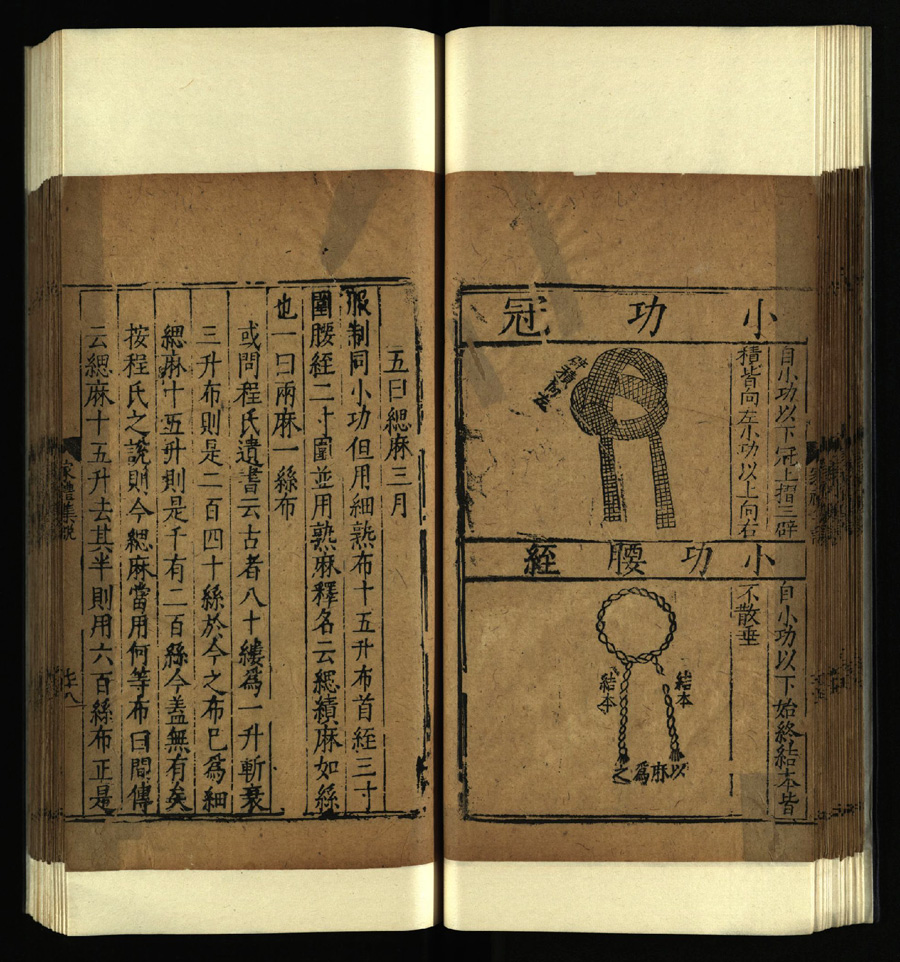 小功冠
自小功以下冠上摺三辟
積皆向左小功以上向右
積向左
小功腰絰
自小功以下始終結本皆
不散垂
結本
結本
以麻爲之
五曰緦麻三月
服制同小功但用細熟布十五升布首絰三寸
圍腰絰二寸圍並用熟麻釋名云緦績麻如絲
也一曰兩麻一絲布
或問程氏遺書云古者八十縷爲一升斬衰
三升布則是二百四十絲於今之布已爲細
緦麻十五升則是千有二百絲今蓋無有矣
按程氏之說則今緦麻當用何等布曰間傳
云緦麻十五升去其半則用六百絲布正是
家禮集說